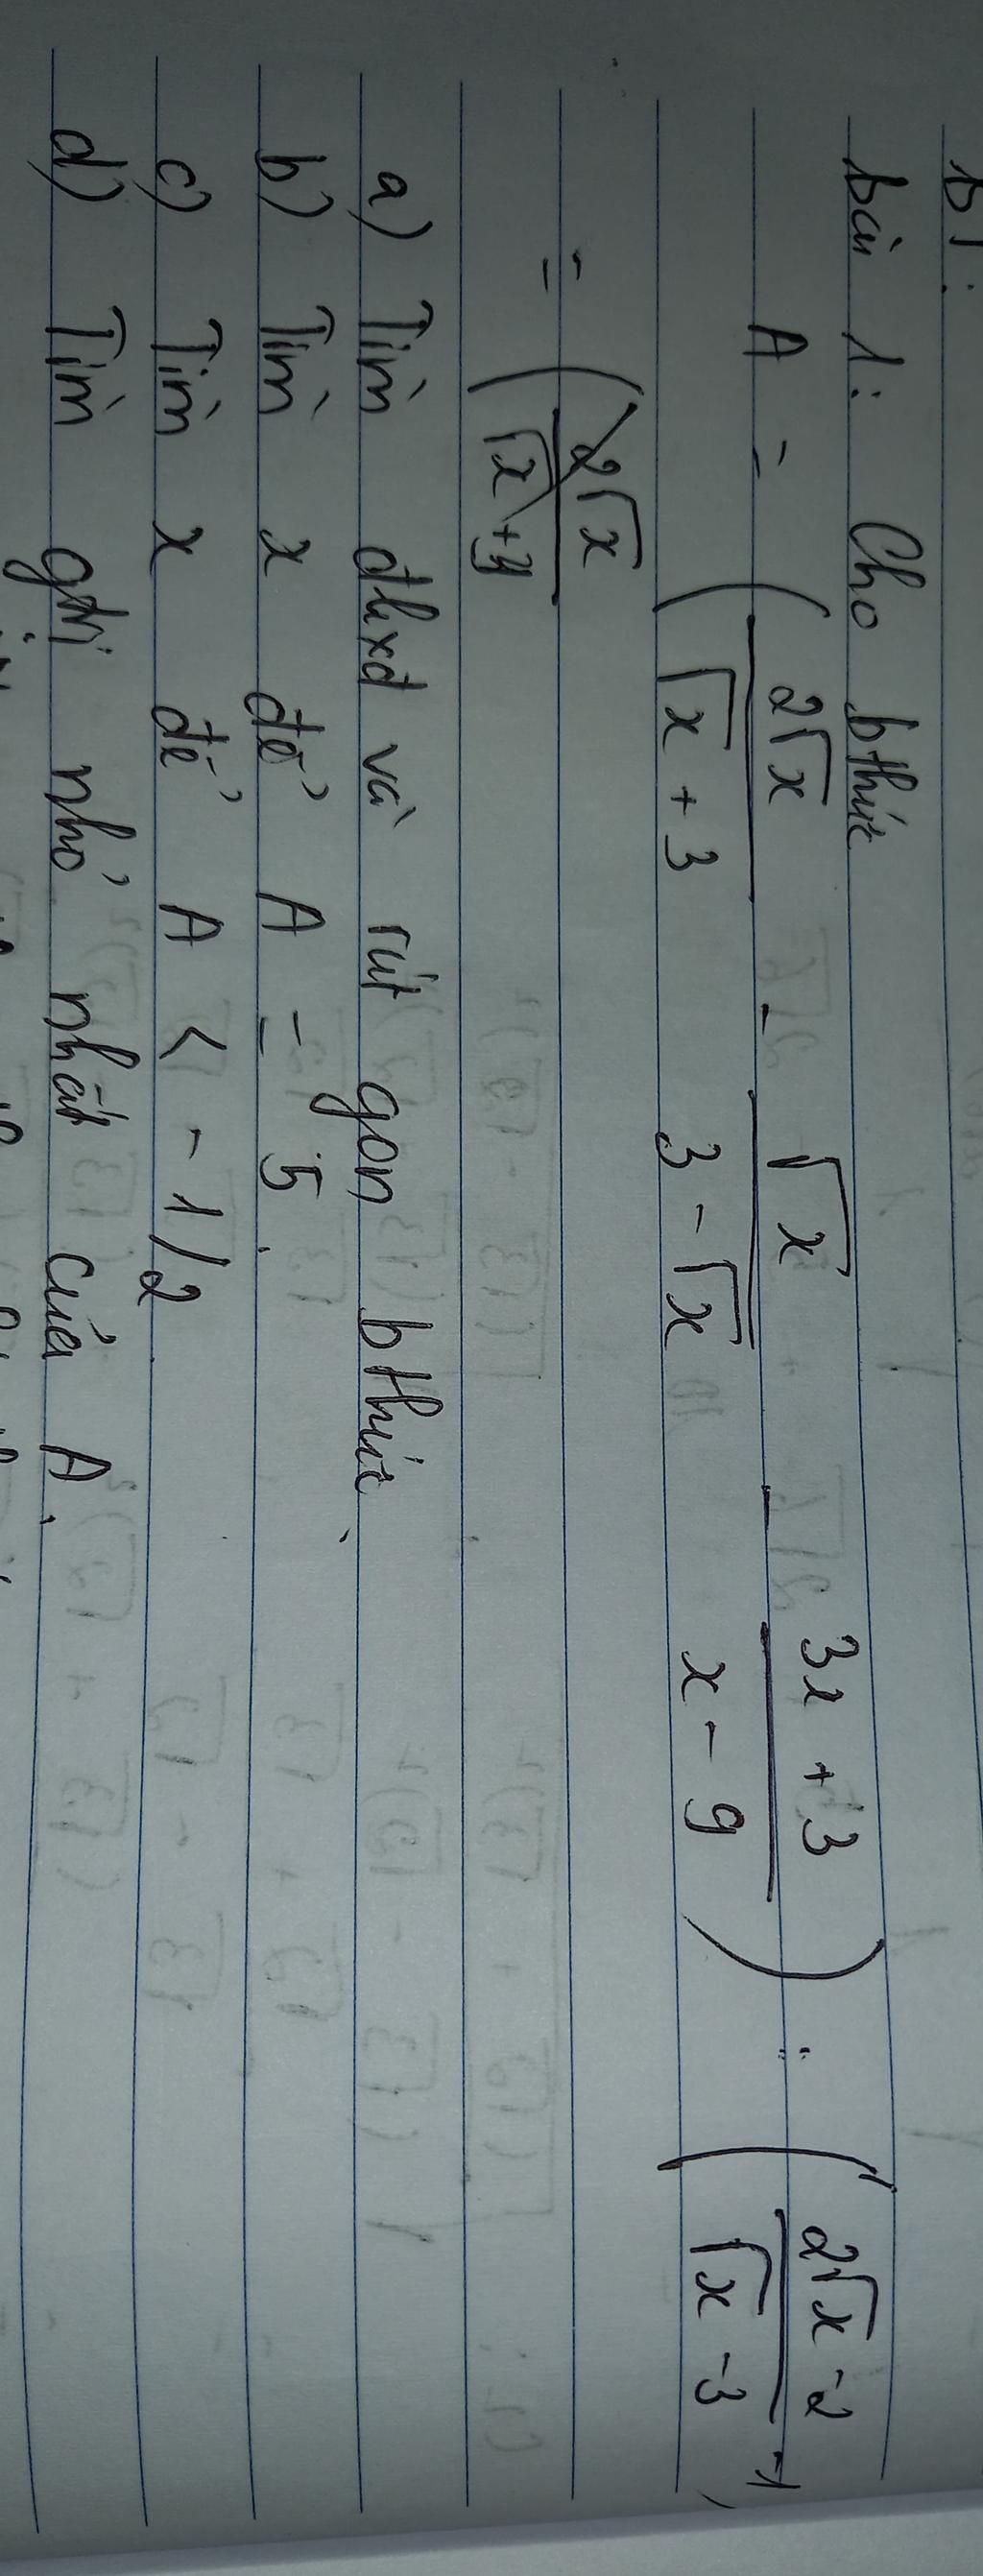 BT:
bài 1: Cho bthức
A = ( 2√x / √x + 3 - √x / 3 - √x - 3x + 3 / x - 9 ) : ( 2√x - 2 / √x - 3 - 1 )
= ( 2√x / √x + 3
a) Tìm đkxđ và rút gọn bthức
b) Tìm x để A = 5.
c) Tìm x để A < - 1/2
d) Tìm gtrị nhỏ nhất của A.